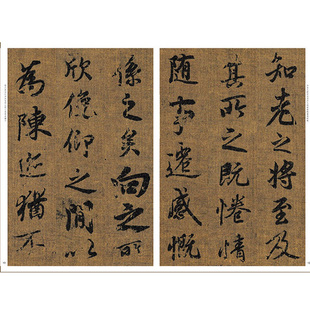 知老之将至及
其所之既惓情
随事遷感慨
係之矣向之所
欣俛仰之閒以
為陳迹猶不